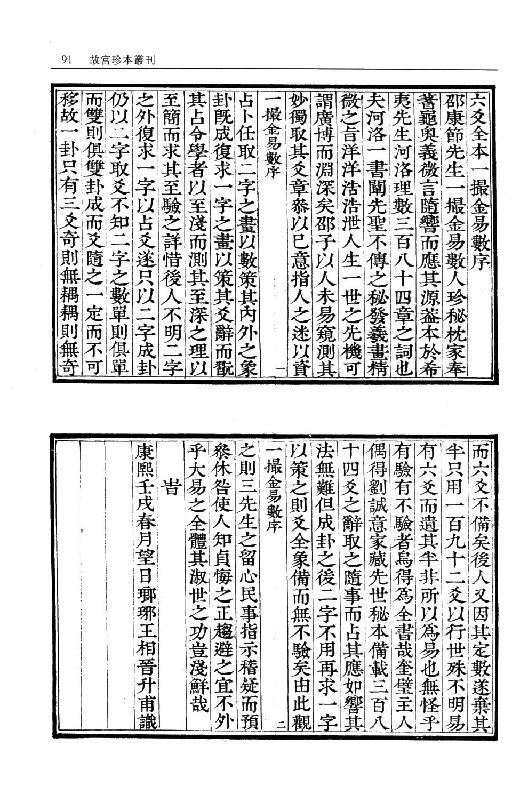 91 故宮珍本叢刊
六爻全本一撮金易數序
邵康節先生一撮金易數人珍秘枕家奉
蓍龜奥義微言隨響而應其源葢本於希
夷先生河洛理數三百八十四章之詞也
夫河洛一書闡先聖不傳之秘發義畫精
微之旨洋洋浩浩泄人生一世之先機可
謂廣博而淵深矣邵子以人未易窺測其
妙獨取其爻章叅以已意指人之迷以資
一撮金易數序 一
占卜任取二字之畫以數策其內外之象
卦既成復求一字之畫以策其爻辭而觀
其占令學者以至淺而測其至深之理以
至簡而求其至驗之詳惜後人不明二字
之外復求一字以占爻遂只以二字成卦
仍以二字取爻不知二字之數單則俱單
而雙則俱雙卦成而爻隨之一定而不可
移故一卦只有三爻奇則無耦耦則無奇
而六爻不備矣後人又因其定數遂棄其
半只用一百九十二爻以行世殊不明易
有六爻而遺其半非所以為易也無怪乎
有驗有不驗者烏得為全書哉奎璧主人
偶得劉誠意家藏先世秘本備載三百八
十四爻之辭取之隨事而占其應如響其
法無難但成卦之後二字不用再求一字
以策之則爻全象備而無不驗矣由此觀
一撮金易數序 二
之則三先生之留心民事指示稽疑而預
叅休咎使人知貞悔之正趨避之宜不外
乎大易之全體其淑世之功豈淺鮮哉
旹
康熙壬戌春月望日瑯琊王相晉升甫識